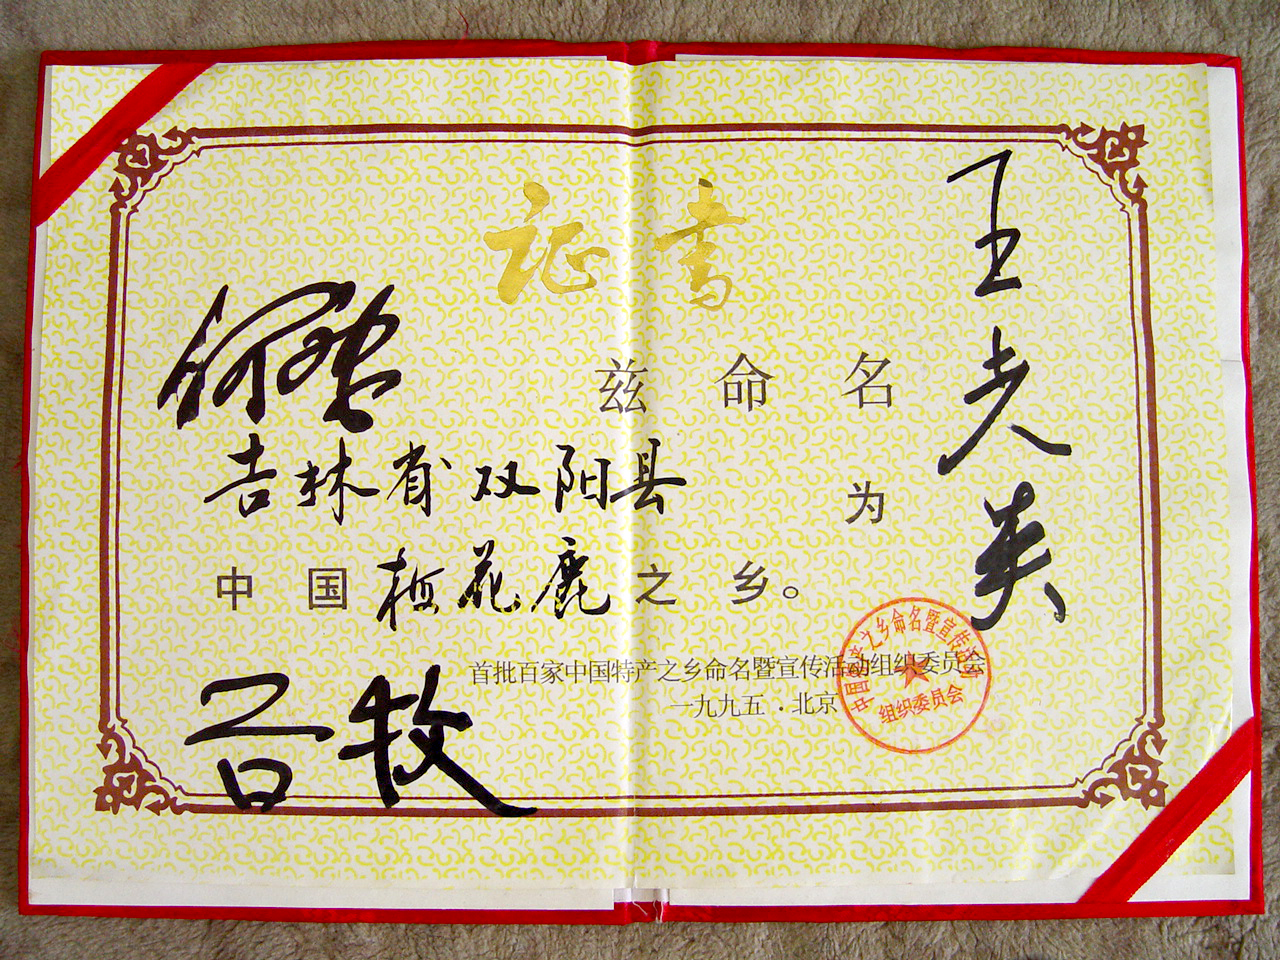 证书
兹命名
吉林省双阳县 为
中国梅花鹿之乡。
首批百家中国特产之乡命名暨宣传活动组织委员会
一九九五·北京
中国特产之乡命名暨宣传活动
组织委员会
吕牧